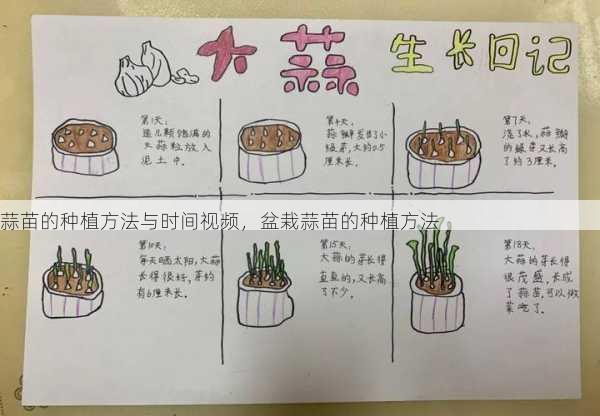 大蒜 生长日记
第1天:
选几颗饱满的
大蒜粒放入
泥土中。
第4天:
蒜瓣发出了小
绿芽,大约0.5
厘米长。
第7天:
浇了水,蒜瓣
的绿芽又长高
了约3厘米。
蒜苗的种植方法与时间视频,盆栽蒜苗的种植方法
第10天:
每天晒太阳,大蒜
长得很好,芽约
有6厘米长。
第15天:
大蒜的芽长得
直直的,又长高
了不少。
第18天:
大蒜的芽长得
很茂盛,长成
了蒜苗,可以做
菜吃了。